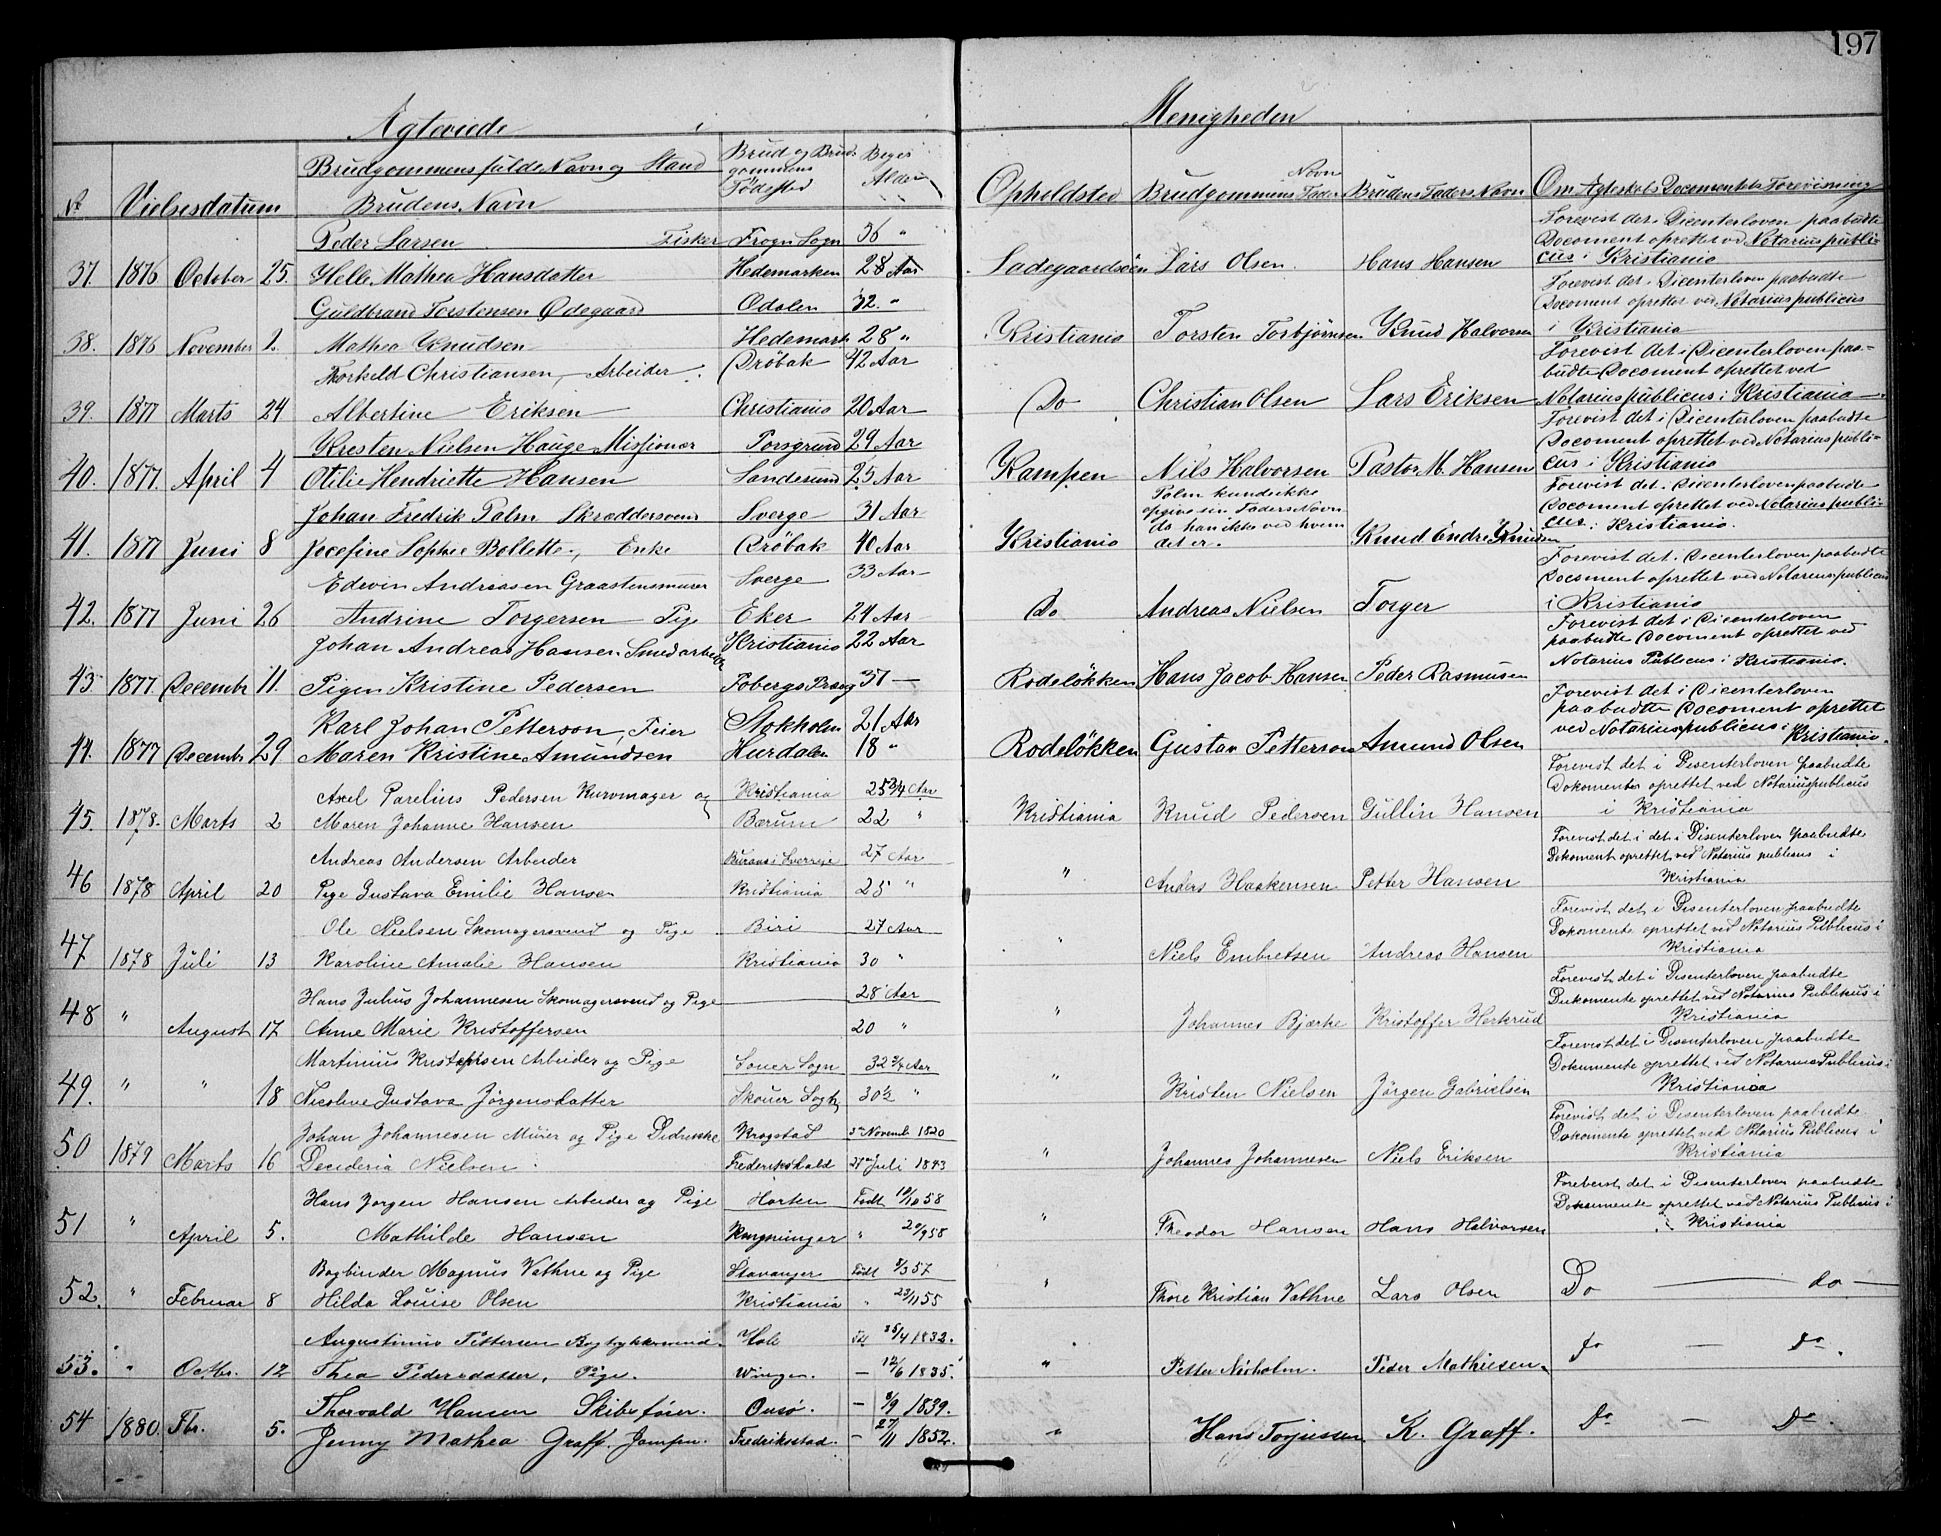 197
Ægteviede i Menigheden
No Vielsesdatum Brudgommens fulde Navn og Stand Brud og Brudgommens Fødested Beges Alder Opholdsted Brudgommens Fader Navn Brudens Faders Navn Om Ægteskabs Documentets Forevisning
Brudens Navn
Peder Larsen Fisker Frogn Sogn 36 " Forevist det i Dicenterloven paabudte
Document oprettet ved Notarius publi-
37. 1876 October 25. Helle Mathea Hansdatter Hedemarken 28 Aar Ladegaardsøen Lars Olsen. Hans Hansen cus i Kristiania
Guldbrand Torstensen Ødegaard Odalen 32. " Forevist det i Dicenterloven paabudte
Document oprettet ved Notarius publicus
38. 1876 November 2. Mathea Knudsen Hedemark 28 " Kristiania Torsten Torbjørnsen Knud Halvorsen i Kristiania
Thorkeld Christiansen, Arbeider. Drøbak 42 Aar Forevist det i Dicenterloven paa-
budte Document oprettet ved
39. 1877 Marts 24 Albertine Eriksen Christiania 20 Aar Do Christian Olsen Lars Eriksen Notarius publicus i Kristiania
Kresten Nielsen Hauge Missionær Porsgrund 29 Aar Forevist det i Dicenterloven paabudte
Document oprettet ved Notarius publi-
40. 1877. April 4 Otilie Henriette Hansen Sandesund 25 Aar Kampen Nils Halvorsen Pastor M. Hansen cus i Kristiania
Johan Fredrik Palm Skræddersvend Sverge 31 Aar Palm kunde ikke opgive sin Faders Navn da han ikke ved hvem det er. Forevist det i Dicenterloven paabudte
Document oprettet ved Notarius publi-
41. 1877 Juni 8 Josefine Sophie Bollette, Enke Drøbak 40 Aar Kristiania Knud Endre Knudsen cus i Kristiania.
Edevin Andreasen Graastensmurer Sverge 33 Aar Forevist det i Dicenterloven paabudte
Document oprettet ved Notarius publicus
42. 1877 Juni 26 Andrine Torgersen Pige Eker 24 Aar Do Andreas Nielsen Torger i Kristiania
Johan Andreas Hansen Smedarbeider Kristiania 22 Aar Forevist det i Dicenterloven
paabudte Document oprettet ved
43 1877. Decembr 11. Pigen Kristine Pedersen 37 — Rodeløkken Hans Jacob Hansen Peder Rasmusen Notarius Publicus i Kristiania.
Karl Johan Petterson, Feier Stokholm 21 Aar Forevist det i Dicenterloven
paabudte Document oprettet
44. 1877 Decembr 29. Maren Kristine Amundsen Hurdalen 18 " Rodeløkken Gustav Petterson Amund Olsen ved Notarius publicus i Kristiania.
Axel Parelius Pedersen Kurvmager og Kristiania 25 3/4 Aar Forevist det i Disenterloven paabudte
Dokomenter oprettet ved Notarius publicus
45. 1878. Marts 2 Maren Johanne Hansen Bærum 22 " Kristiania Knud Pedersen Gullin Hansen i Kristiania
Andreas Andersen Arbeider i Sverrige 27 Aar Forevist det i det i Disenterloven paabudte
Dokoment oprettet ved Notarius publicus i
46 1878 April 20 Pige Gustava Emilie Hansen Kristiania 25 " " Anders Haakensen Petter Hansen Kristiania
Ole Nielsen Skomagersvend og Pige Biri 27 Aar Forevist det i Disenterloven paabudte
Dokomente oprettet ved Notarius Publicus i
47 1878 Juli 13 Karoline Amalie Hansen Kristiania 30 " " Niels Embretsen Andreas Hansen Kristiania
Hans Julius Johannesen Skomagersvend og Pige 28 Aar Forevist det i Disenterloven paabudte
Dokomente oprettet ved Notarius Publikus i
48 " August 17 Anne Marie Kristoffersen 20 " " Johannes Bjærke Kristoffer Herkrud Kristiania
Martinius Kristensen Arbeider og Pige Soner Sogn 32 3/4 Aar Forevist det i Disenterloven paabudte
Dokumente oprettet ved Notarius Publicus i
49. " " 18 Nicoline Gustava Jørgensdatter Skouer 30 1/2 " " Kristen Nielsen Jørgen Gabrielsen Kristiania
Johan Johannesen Murer og Pige Didrikke Krogstad Novemb 1820 Forevist det i Disenterloven paabudte
Dokomente oprettet ved Notarius Publicus i
50. 1879 Marts 16 Decideria Nielsen. Frederikshald Juli 1843 " Johannes Johannesen Niels Eriksen Kristiania
Hans Jørgen Hansen Arbeider og Pige Horten Født 10/10 58 Foreberst det i Disenterloven paabudte
Dokumente oprettet ved Notarius Publicus i
51 " April 5. Mathilde Hansen Kongsvinger " 20/9 58 " Theodor Hansen Hans Halvorsen Kristiania
Bogbinder Magnus Vathne og Pige Stavanger Født 8/3 57
52. " Februar 8 Hilda Louise Olsen Kristiania " 23/11 55 " Thore Kristian Vathne Lars Olsen Do — do —
Augustinus Pettersen Bogtykkersvend. Hole 25/4 1832.
53. " Octbr. 12 Thea Pedersdatter, Pige. Winger. — 12/6 1835. " Petter Nerholm. Peder Mathiesen. do — do.
Thorvald Hansen Skibsfører. Onsø. — 8/9 1839.
54 1880. Fbr. 5. Jenny Mathea Graff. Jomfru. Fredriksstad. — 27/11 1852. " Hans Torjussen K. Graff. Do — Do.